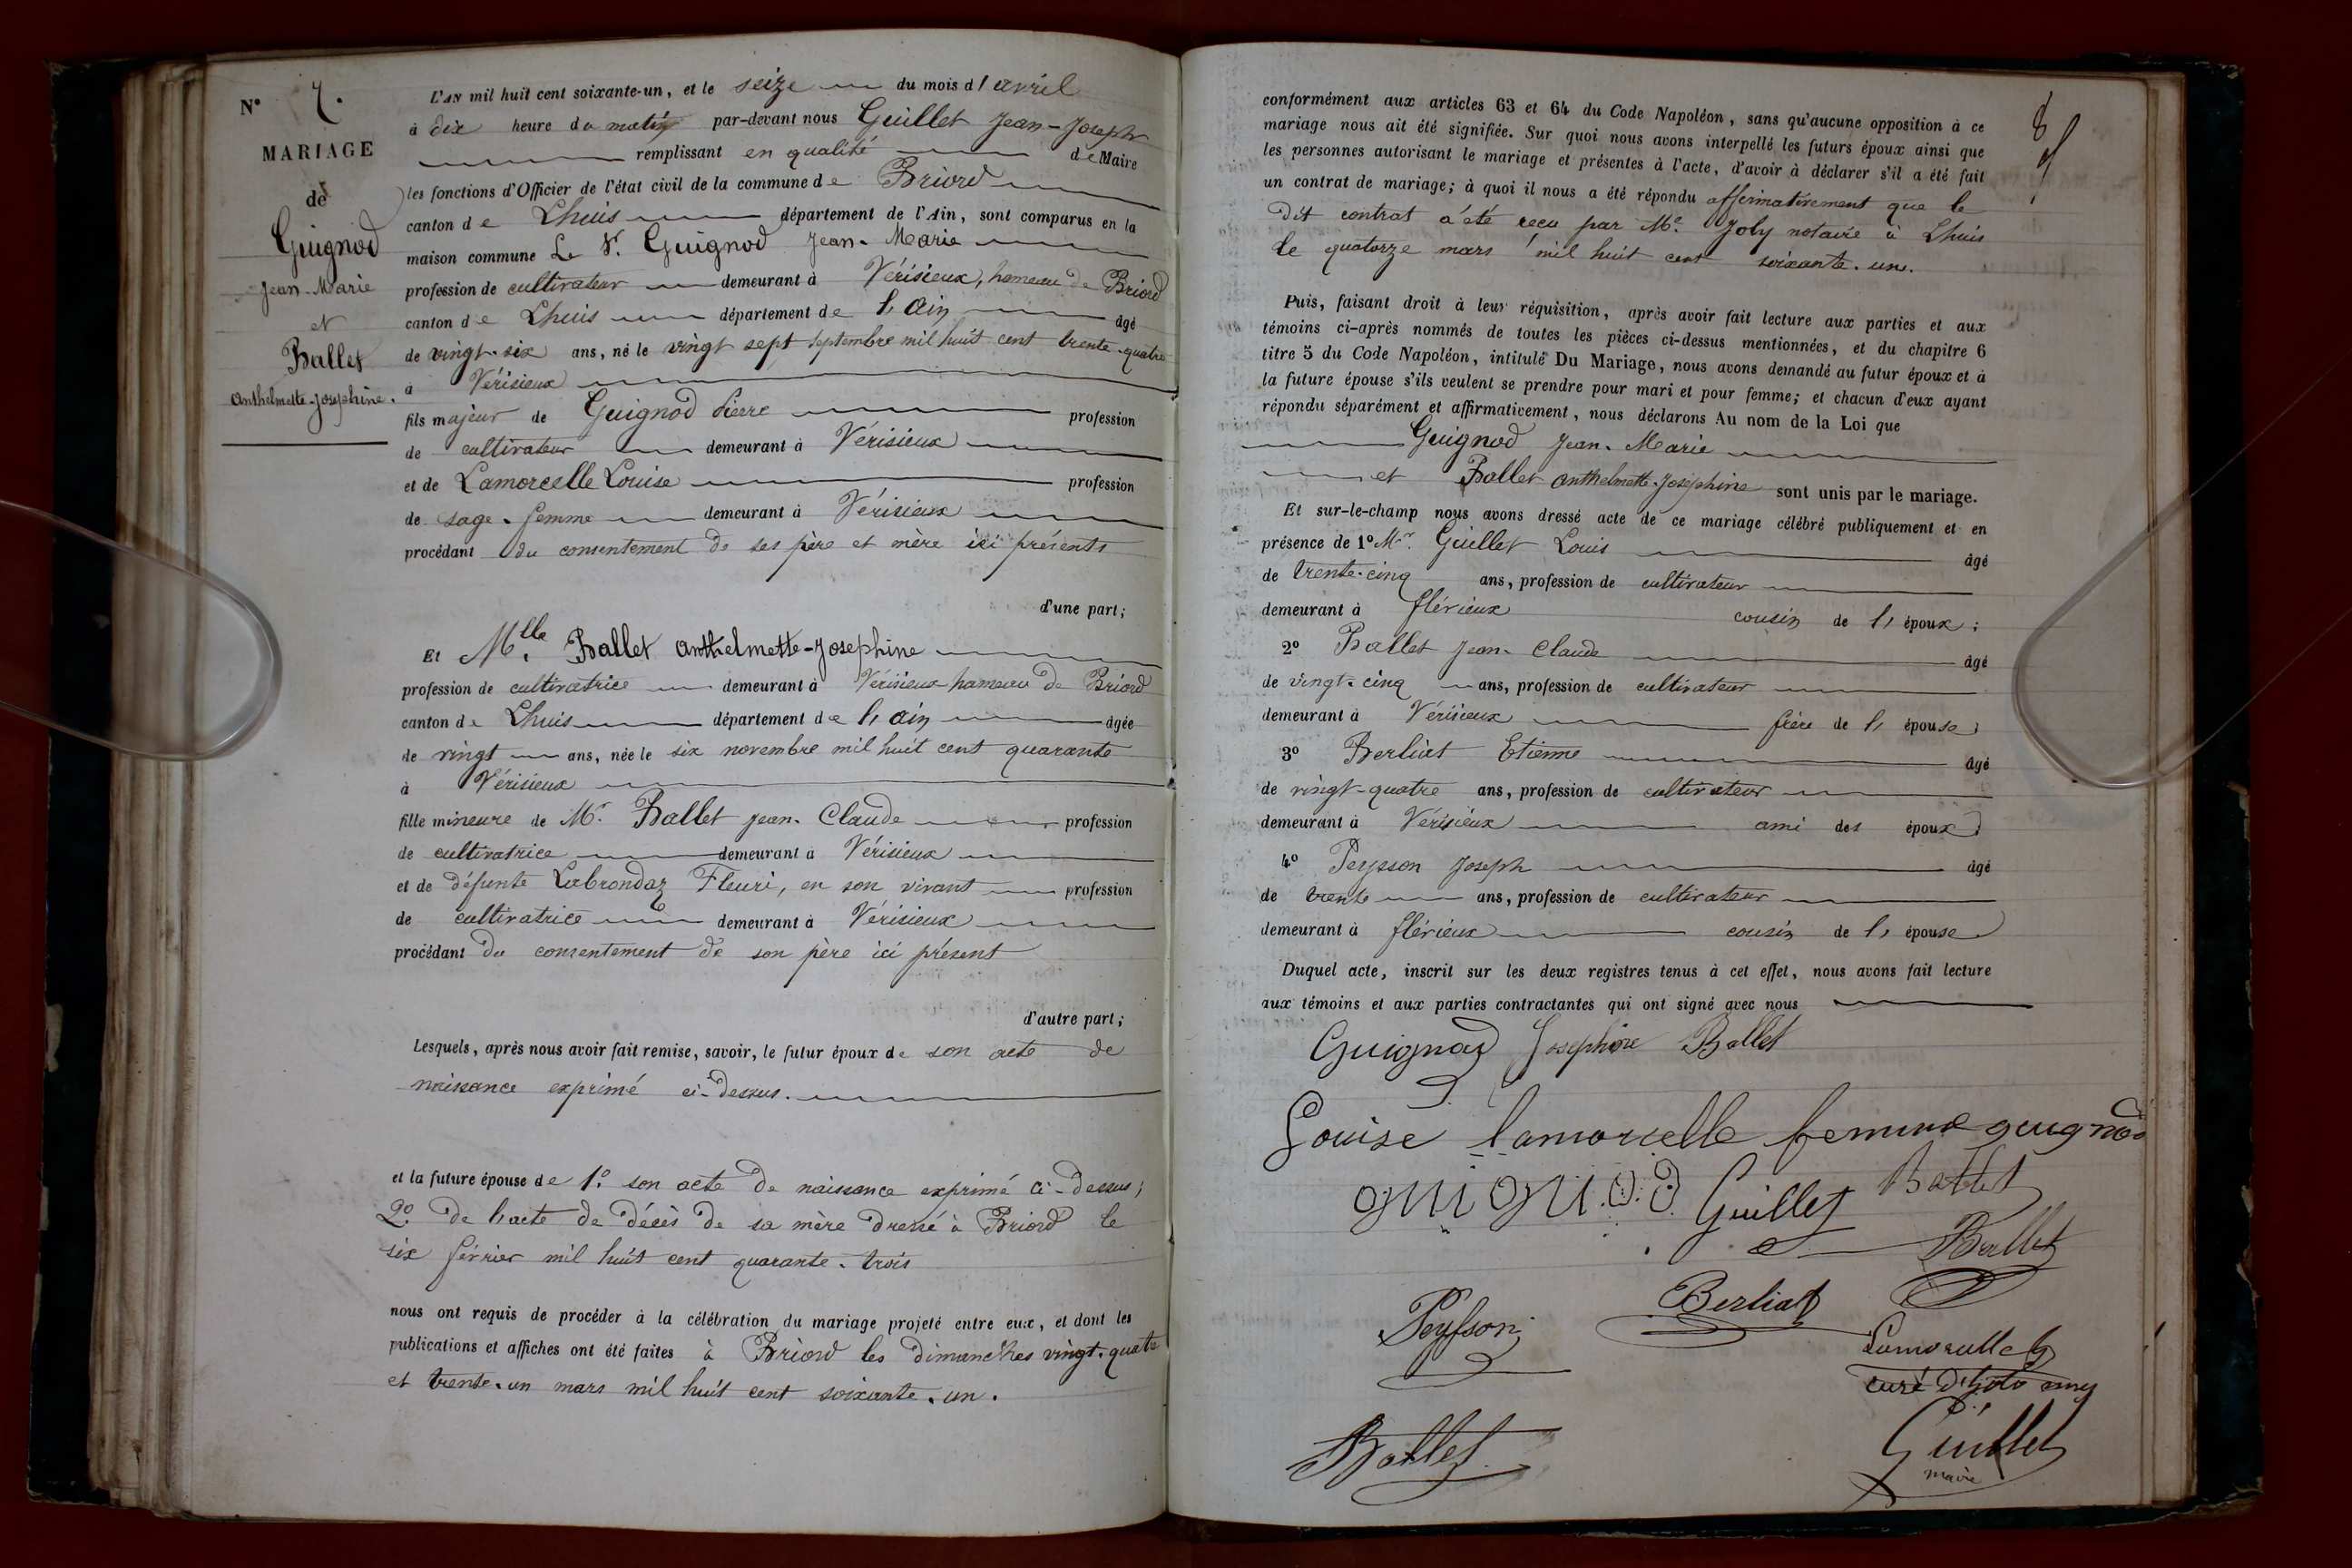 N° 7.
MARIAGE
de
Guignod
Jean-Marie
et
Ballet
Anthelmette-Josephine.
L'AN mil huit cent soixante-un, et le seize du mois d'avril
à dix heure du matin par-devant nous Guillet Jean-Joseph
remplissant en qualité de Maire
les fonctions d'Officier de l'état civil de la commune de Briord
canton de Lhuis département de l'Ain, sont comparus en la
maison commune Le Sr. Guignod Jean-Marie
profession de cultivateur demeurant à Vérisieux, hameau de Briord
canton de Lhuis département de l'Ain âgé
de vingt-six ans, né le vingt sept septembre mil huit cent trente-quatre
à Vérisieux
fils majeur de Guignod Pierre profession
de cultivateur demeurant à Vérisieux
et de Lamorcelle Louise profession
de sage-femme demeurant à Vérisieux
procédant du consentement de ses père et mère ici présents
d'une part;
Et Mlle. Ballet Anthelmette-Josephine
profession de cultivatrice demeurant à Vérisieux hameau de Briord
canton de Lhuis département de l'Ain âgée
de vingt ans, née le six novembre mil huit cent quarante
à Vérisieux
fille mineure de Mr. Ballet Jean-Claude profession
de cultivatrice demeurant à Vérisieux
et de défunte Labrondaz Fleuri, en son vivant profession
de cultivatrice demeurant à Vérisieux
procédant du consentement de son père ici présent
d'autre part;
Lesquels, après nous avoir fait remise, savoir, le futur époux de son acte de
naissance exprimé ci-dessus.
et la future épouse de 1.° son acte de naissance exprimé ci-dessus;
2.° de l'acte de décès de sa mère dressé à Briord le
six février mil huit cent quarante-trois
nous ont requis de procéder à la célébration du mariage projeté entre eux, et dont les
publications et affiches ont été faites à Briord les dimanches vingt-quatre
et trente-un mars mil huit cent soixante-un.
8
conformément aux articles 63 et 64 du Code Napoléon, sans qu'aucune opposition à ce
mariage nous ait été signifiée. Sur quoi nous avons interpellé les futurs époux ainsi que
les personnes autorisant le mariage et présentes à l'acte, d'avoir à déclarer s'il a été fait
un contrat de mariage; à quoi il nous a été répondu affirmativement que le
dit contrat a été reçu par Me. Joly notaire à Lhuis
le quatorze mars mil huit cent soixante-un.
Puis, faisant droit à leur réquisition, après avoir fait lecture aux parties et aux
témoins ci-après nommés de toutes les pièces ci-dessus mentionnées, et du chapitre 6
titre 5 du Code Napoléon, intitulé Du Mariage, nous avons demandé au futur époux et à
la future épouse s'ils veulent se prendre pour mari et pour femme; et chacun d'eux ayant
répondu séparément et affirmativement, nous déclarons Au nom de la Loi que
Guignod Jean-Marie
et Ballet Anthelmette-Josephine sont unis par le mariage.
Et sur-le-champ nous avons dressé acte de ce mariage célébré publiquement et en
présence de 1° Mr. Guillet Louis âgé
de trente-cinq ans, profession de cultivateur
demeurant à flérieux cousin de l'époux;
2° Ballet Jean-Claude âgé
de vingt-cinq ans, profession de cultivateur
demeurant à Vérisieux frère de l'épouse;
3° Berliat Etienne âgé
de vingt-quatre ans, profession de cultivateur
demeurant à Vérisieux ami des époux;
4° Peysson Joseph âgé
de trente ans, profession de cultivateur
demeurant à flérieux cousin de l'épouse
Duquel acte, inscrit sur les deux registres tenus à cet effet, nous avons fait lecture
aux témoins et aux parties contractantes qui ont signé avec nous
Guignod Josephine Ballet
Louise lamorcelle femme guignod
guignod Guillet Ballet
Ballet
Peysson Berliat
Lamorcelle
curé
Ballet
Guillet
maire